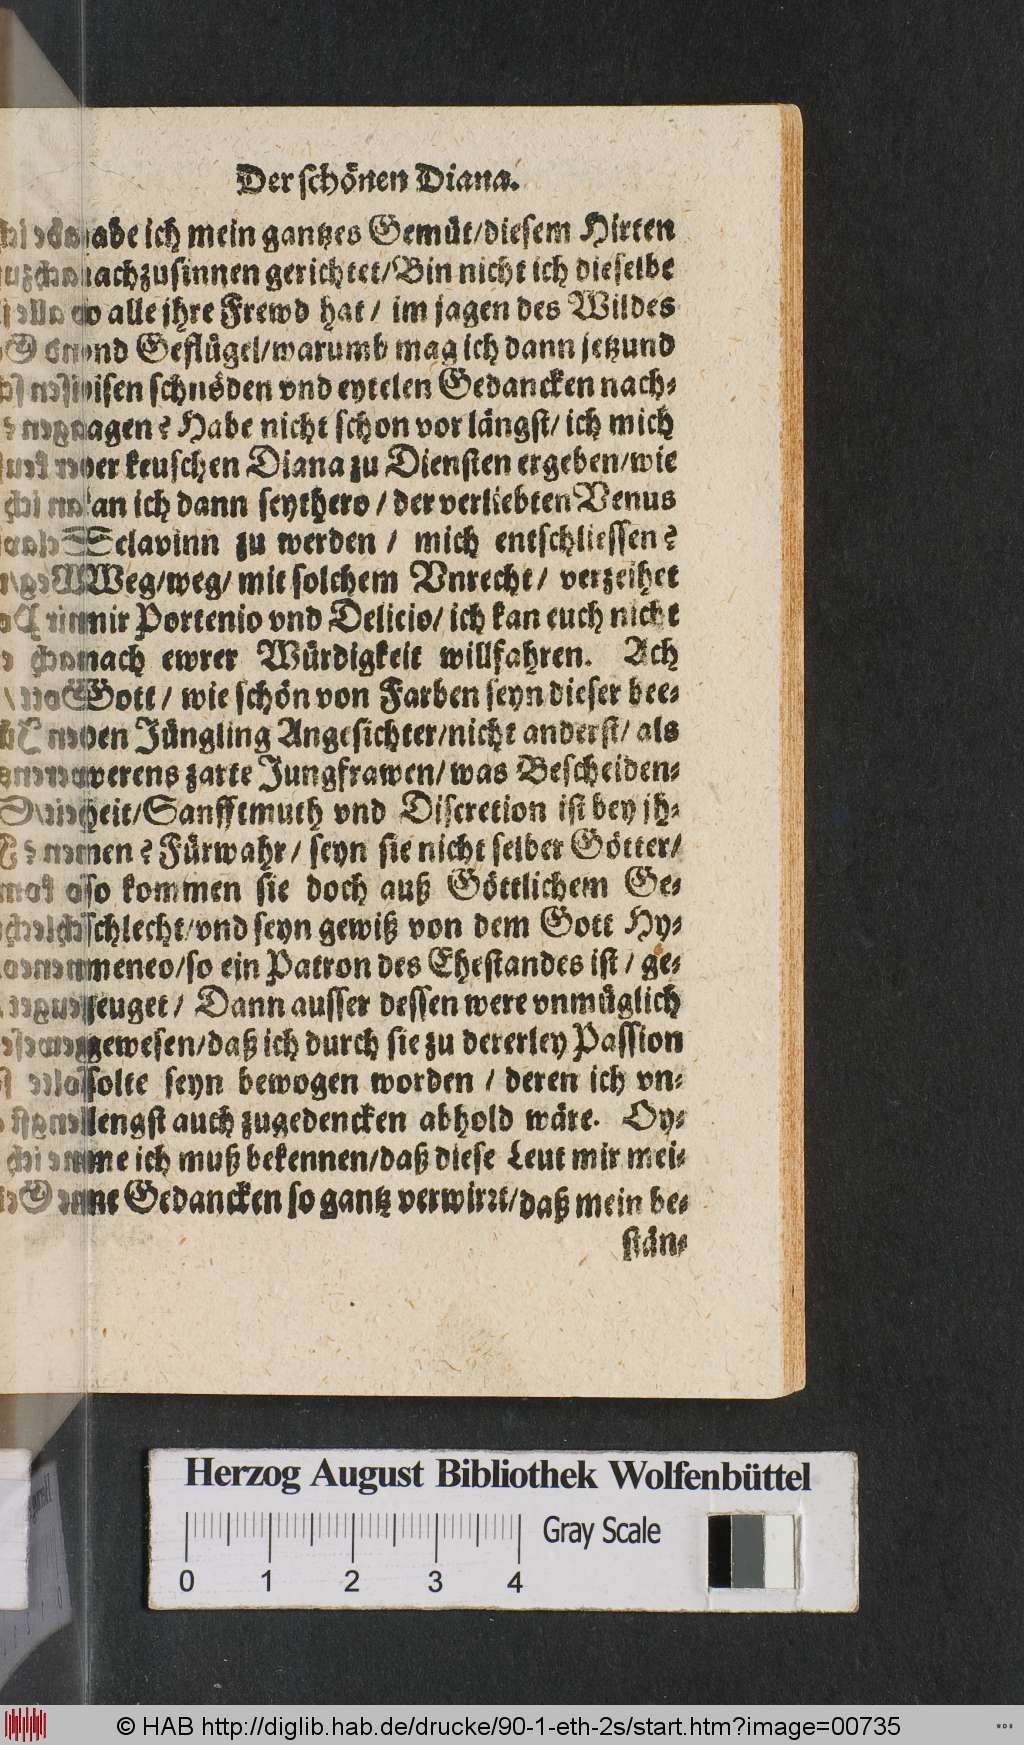 Der schönen Diana.
habe ich mein gantzes Gemüt/diesem Hirten
nachzusinnen gerichtet/Bin nicht ich dieselbe
so alle jhre Frewd hat / im jagen des Wildes
vnd Geflügel/warumb mag ich dann jetzund
disen schnöden vnd eytelen Gedancken nach-
jagen? Habe nicht schon vor längst/ ich mich
der keuschen Diana zu Diensten ergeben/wie
kan ich dann seythero / der verliebten Venus
Sclavinn zu werden / mich entschliessen?
Weg/weg/ mit solchem Vnrecht/ verzeihet
mir Portenio vnd Delicio/ ich kan euch nicht
nach ewrer Würdigkeit willfahren. Ach
Gott / wie schön von Farben seyn dieser bee-
den Jüngling Angesichter/nicht anderst/ als
werens zarte Jungfrawen/ was Bescheiden-
heit/Sanfftmuth vnd Discretion ist bey jh-
nen? Fürwahr/ seyn sie nicht selber Götter/
so kommen sie doch auß Göttlichem Ge-
schlecht/vnd seyn gewiß von dem Gott Hy-
meneo/so ein Patron des Ehestandes ist / ge-
zeuget / Dann ausser dessen were vnmüglich
gewesen/daß ich durch sie zu dererley Passion
solte seyn bewogen worden / deren ich vn-
lengst auch zugedencken abhold wäre. Oy-
me ich muß bekennen/daß diese Leut mir mei-
ne Gedancken so gantz verwirrt/daß mein be-
stän-
Herzog August Bibliothek Wolfenbüttel
Gray Scale
0 1 2 3 4
© HAB http://diglib.hab.de/drucke/90-1-eth-2s/start.htm?image=00735